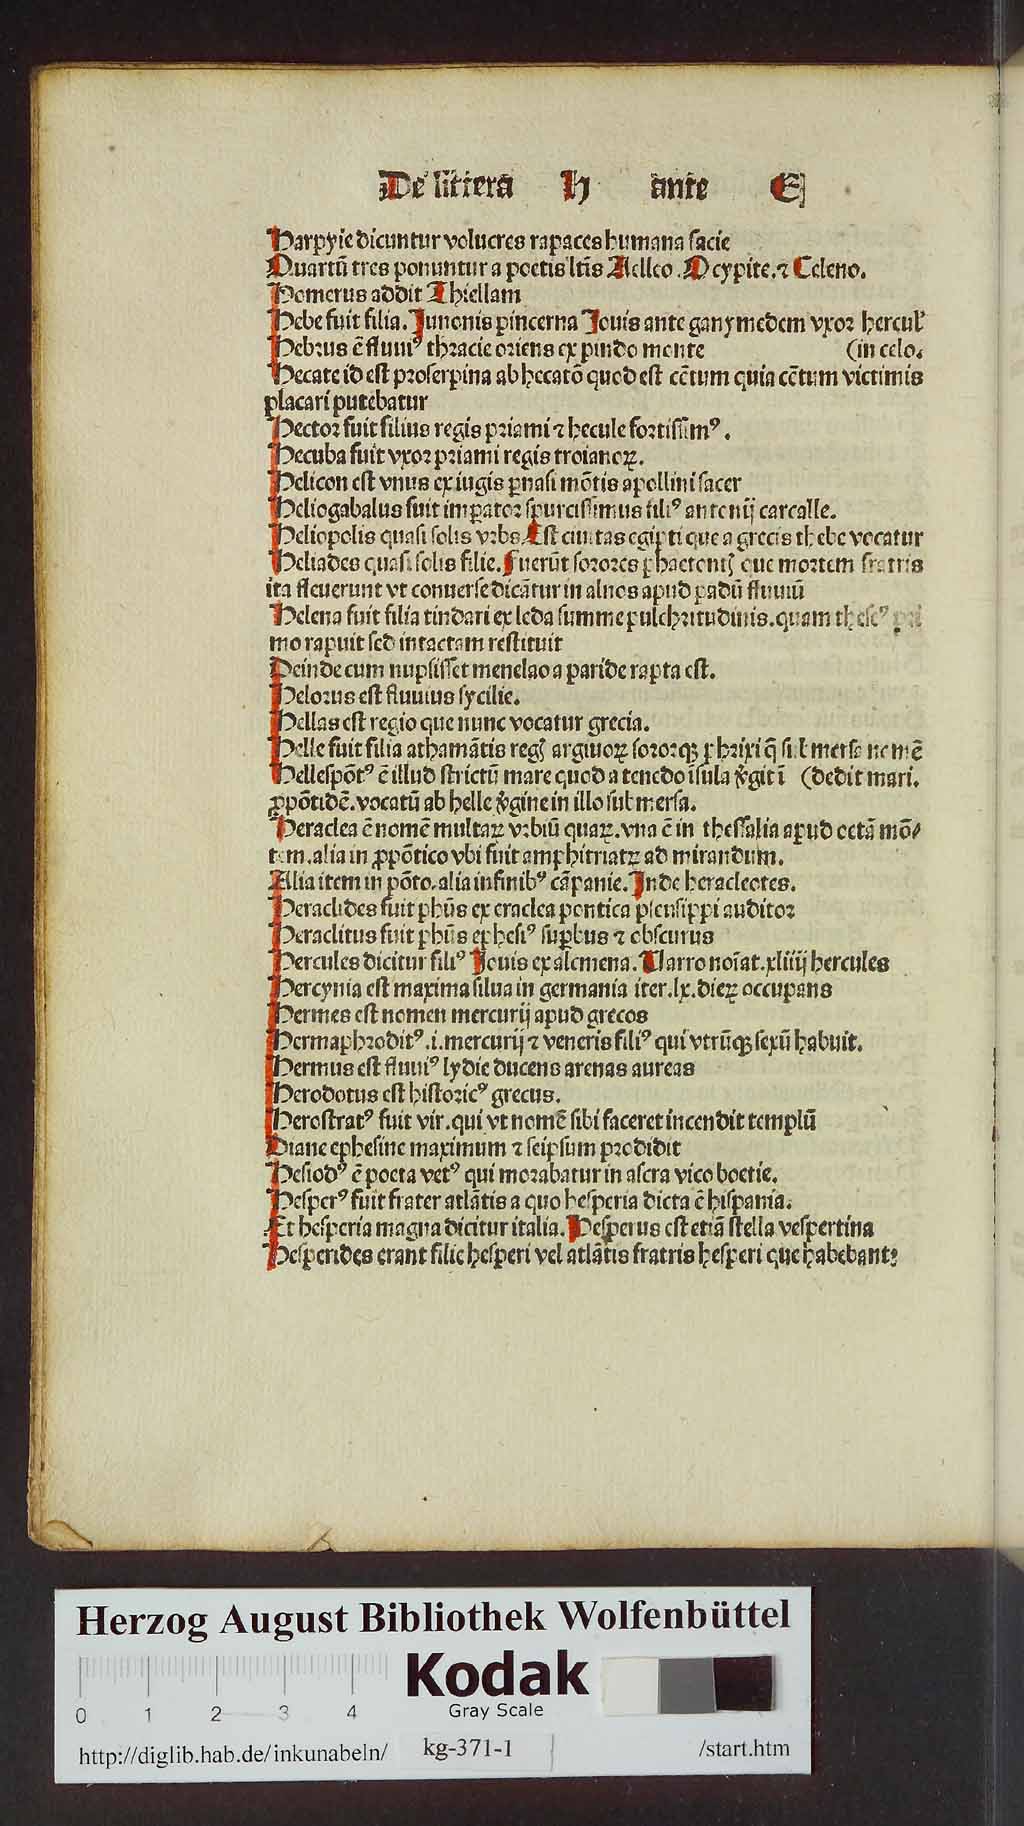 De littera H ante E
Harpyie dicuntur volucres rapaces humana facie
Quarū tres ponuntur a poetis lr̄is Aelleo. Ocypite. ⁊ Celeno.
Homerus addit Thiellam
Hebe fuit filia. Junonis pincerna Jouis ante ganymedem vxor hercul'
Hebrus ē fluuiꝰ thracie oriens ex pindo monte (in celo.
Hecate id est proserpina ab hecatō quod est cētum quia cētum victimis
placari putebatur
Hector fuit filius regis priami ⁊ hecule fortissimꝰ.
Hecuba fuit vxor priami regis troianoꝝ.
Helicon est vnus ex iugis ꝑnasi mōtis apollini sacer
Heliogabalus fuit imꝑator spurcissimus filiꝰ antonij carcalle.
Heliopolis quasi solis vrbs. Est ciuitas egipti que a grecis thebe vocatur
Heliades quasi solis filie. fuerūt sorores phaetontꝭ que mortem fratris
ita fleuerunt vt conuerse dicātur in alnos apud padū fluuiū
Helena fuit filia tindari ex leda summe pulchritudinis. quam theseꝰ pri
mo rapuit sed intactam restituit
Deinde cum nupsisset menelao a paride rapta est.
Helorus est fluuius sycilie.
Hellas est regio que nunc vocatur grecia.
Helle fuit filia athamātis regꝭ argiuoꝝ sororqꝫ phrixi q̄ submersa nomē
Hellespōtꝰ ē illud strictū mare quod a tenedo īsula ṽgit ī (dedit mari.
ꝓpōtidē. vocatū ab helle ṽgine in illo submersa.
Heraclea ē nomē multaꝝ vrbiū quaꝝ. vna ē in thessalia apud oetā mō/
tem. alia in ꝓpōtico vbi fuit amphitriatꝝ ad mirandum.
Alia item in pōto. alia in finibꝰ cāpanie. Inde heracleotes.
Heraclides fuit phūs ex eraclea pontica pleusippi auditor
Heraclitus fuit phūs ephesiꝰ suꝑbus ⁊ obscurus
Hercules dicitur filiꝰ Jouis ex alcmena. Varro noīat. xliiij hercules
Hercynia est maxima silua in germania iter. lx. dieꝝ occupans
Hermes est nomen mercurij apud grecos
Hermaphroditꝰ. i. mercurij ⁊ veneris filiꝰ qui vtrūqꝫ sexū habuit.
Hermus est fluuiꝰ lydie ducens arenas aureas
Herodotus est historicꝰ grecus.
Herostratꝰ fuit vir. qui vt nomē sibi faceret incendit templū
Diane ephesine maximum ⁊ seipsum prodidit
Hesiodꝰ ē poeta vetꝰ qui morabatur in ascra vico boetie.
Hesperꝰ fuit frater atlātis a quo hesperia dicta ē hispania.
Et hesperia magna dicitur italia. Hesperus est etiā stella vespertina
Hesperides erant filie hesperi vel atlātis fratris hesperi que habebant
Herzog August Bibliothek Wolfenbüttel
Kodak
Gray Scale
0 1 2 3 4
http://diglib.hab.de/inkunabeln/ kg-371-1 /start.htm